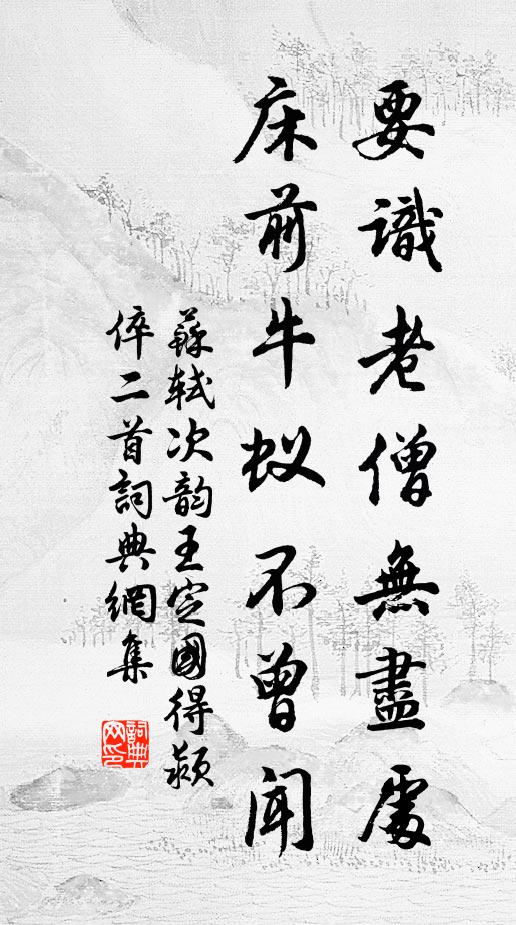 要識老僧無盡處
床前牛蚁不曾聞
蘇軾次韵王定國得颍
倅二首詞典網集
詞典網印